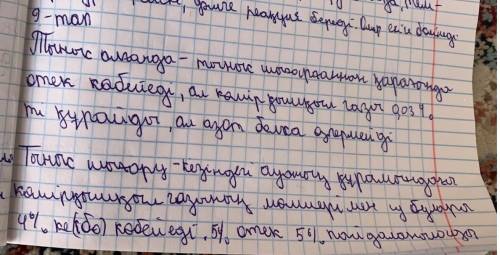 дәлме реакция береді.
9-тап
Тыныс алғанда - тыныс шығарғаннан қарағанда
отек көбейеді, ал көмірқышқыл газы 0,03%
ті құрайды, ал азот болса өзгермейді
Тыныс шығару - кезіндегі ауаның құрамындағы
көмірқышқыл газының мөлшері мен су булары
4% ке(бо) көбейеді. 5% отек 5% пайдаланылады